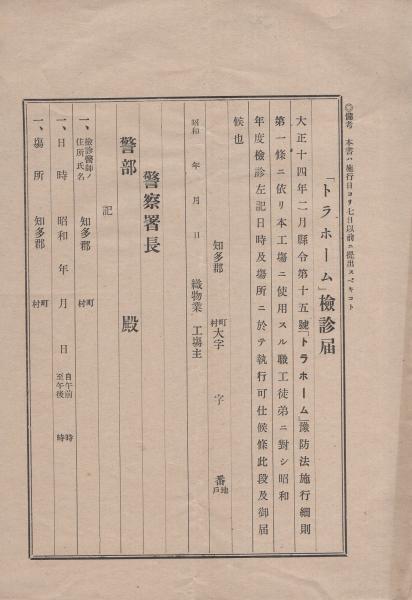 ◎備考　本書ハ施行日ヨリ七日以前ニ提出スベキコト
「トラホーム」檢診屆
大正十四年二月縣令第十五號「トラホーム」豫防法施行細則
第一條ニ依リ本工塲ニ使用スル職工徒弟ニ對シ昭和
年度檢診左記日時及塲所ニ於テ執行可仕候條此段及御屆
候也
知多郡　町村　大字　字　番地戶
昭和　年　月　日　織物業　工塲主
警察署長
警部　殿
記
一、檢診醫師ノ住所氏名　知多郡　町村
一、日時　昭和　年　月　日　自午前　時　至午後　時
一、塲所　知多郡　町村